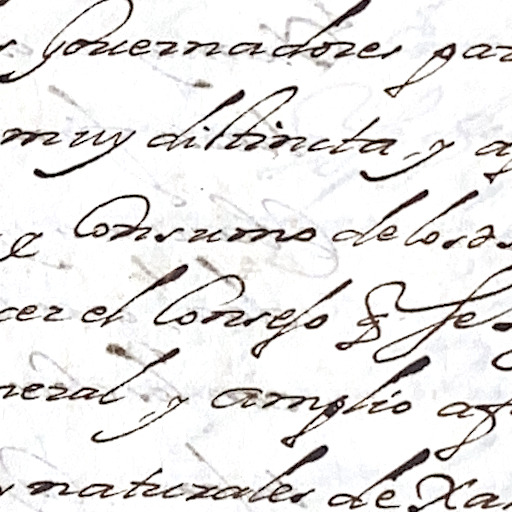 s Governadores par
muy distincta, y a
e Consumo de los
cer el Consejo q̃ se
neral, y amplio a
s naturales de Xa